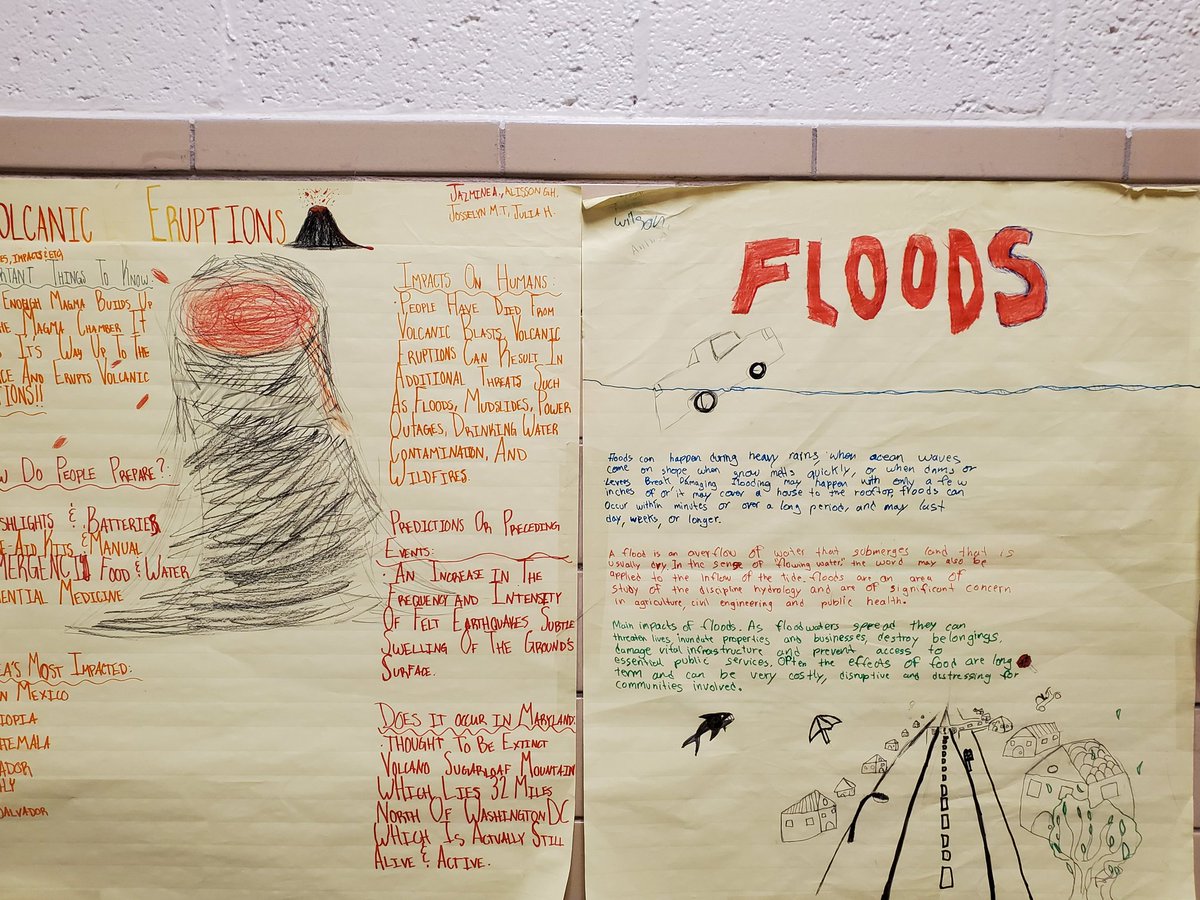 OLCANIC ERUPTIONS
JAZMINE A., ALISSON G.H.
JOSSELYN M.T, JULIA H.
ES, IMPACTS & ETC
RTANT THINGS TO KNOW:
ENOUGH MAGMA BUILDS UP
HE MAGMA CHAMBER IT
S IT'S WAY UP TO THE
ACE AND ERUPTS VOLCANIC
TIONS!!
W DO PEOPLE PREPARE?:
SHLIGHTS & BATTERIES
E-AID KITS & MANUAL
MERGENCI FOOD & WATER
ENTIAL MEDICINE
EA'S MOST IMPACTED:
N MEXICO
IOPIA
TEMALA
ADOR
LY
SALVADOR
IMPACTS ON HUMANS:
· PEOPLE HAVE DIED FROM
VOLCANIC BLASTS. VOLCANIC
ERUPTIONS CAN RESULT IN
ADDITIONAL THREATS SUCH
AS FLOODS, MUDSLIDES, POWER
OUTAGES, DRINKING WATER
CONTAMINATION, AND
WILDFIRES.
PREDICTIONS OR PRECEDING
EVENTS:
· AN INCREASE IN THE
FREQUENCY AND INTENSITY
OF FELT EARTHQUAKES. SUBTLE
SWELLING OF THE GROUND'S
SURFACE.
DOES IT OCCUR IN MARYLAND:
· THOUGHT TO BE EXTINCT
VOLCANO SUGARLOAF MOUNTAIN
WHICH LIES 32 MILES
NORTH OF WASHINGTON DC
WHICH IS ACTUALLY STILL
ALIVE & ACTIVE.
Wilson
FLOODS
floods can happen during heavy rains when ocean waves
come on shope when snow melts quickly, or when dams or
Levees Break Damaging flooding may happen with only a few
inches of or it may cover a house to the rooftop, floods can
occur within minutes or over a long period, and may last
day, weeks, or longer.
A flood is an overflow of water that submerges land that is
usually dry. In the sense of flowing water, the word may also be
applied to the inflow of the tide. floods are an area of
study of the discipline hydrology and are of significant concern
in agriculture, civil engineering and public health.
Main impacts of floods. As floodwaters spread they can
threaten lives, inundate properties and businesses, destroy belongings,
damage vital infrastructure and prevent access to
essential public services. Often the effects of food are long
term and can be very costly, disruptive and distressing for
communities involved.